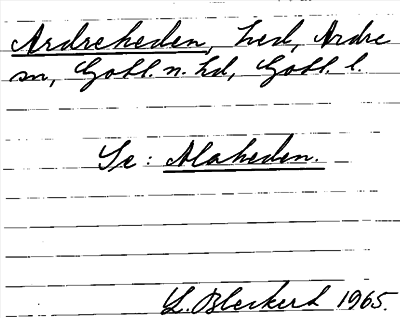 Ardreheden, hed, Ardre
sn, Gotl. n. hd, Gotl. l.
Se: Alaheden.
L. Bleckert 1965.